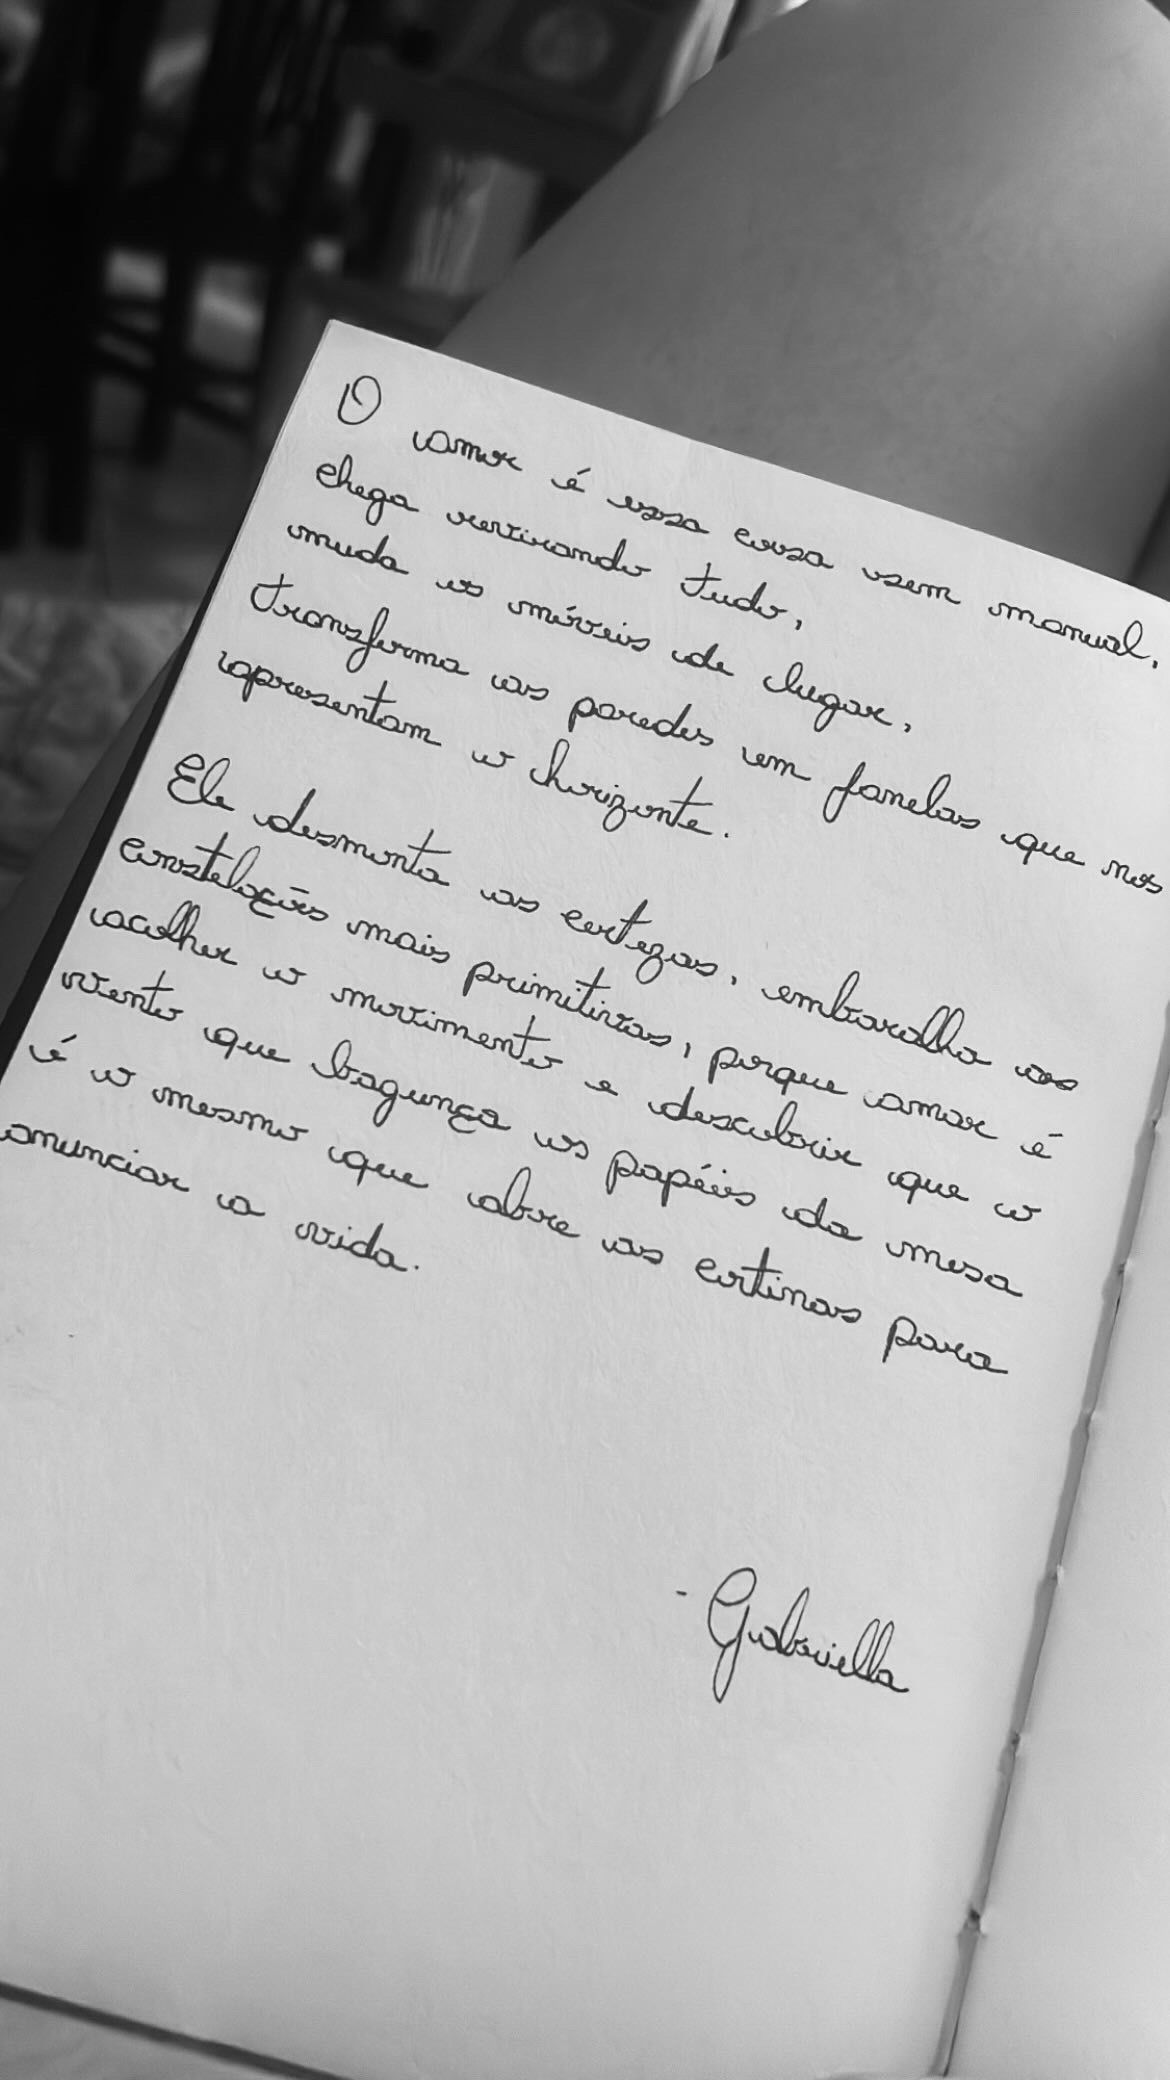 O amor é essa coisa sem manual,
chega revirando tudo,
muda os móveis de lugar,
transforma as paredes em janelas que nos
apresentam o horizonte.
Ele desmonta as certezas, embaralha as
constelações mais primitivas, porque amar é
acolher o movimento e descobrir que o
vento que bagunça os papéis da mesa
é o mesmo que abre as cortinas para
anunciar a vida.
- Gabriella